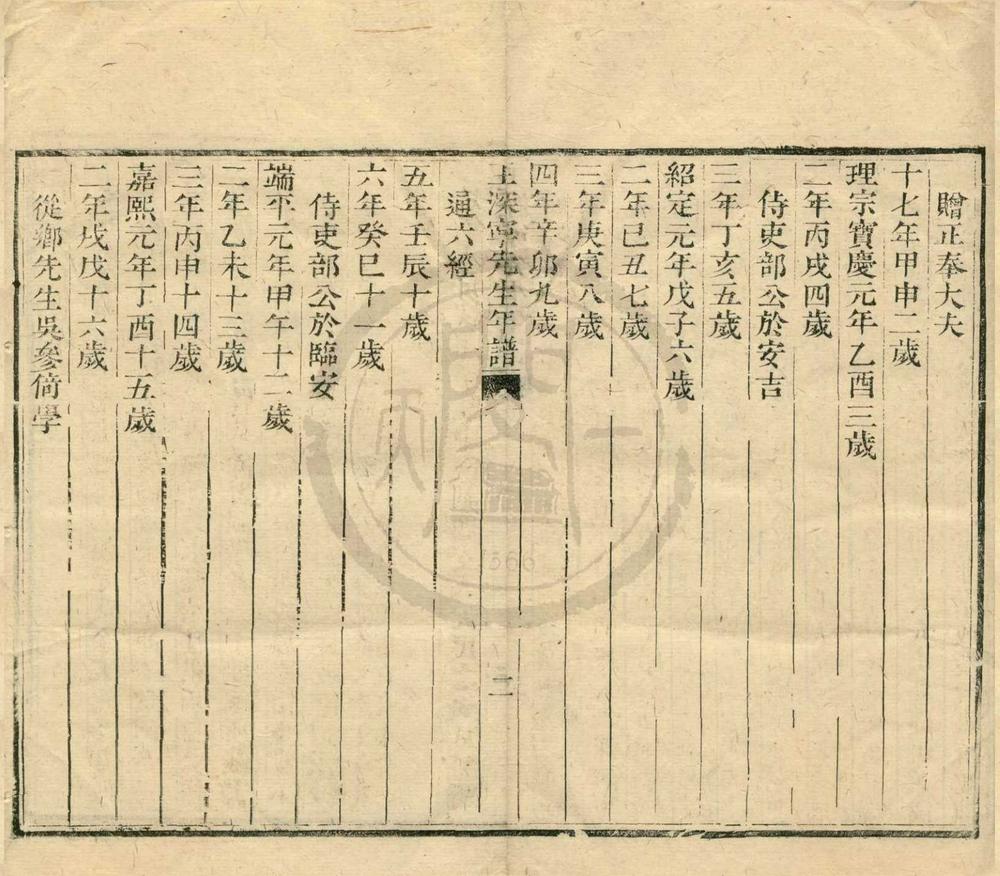 贈正奉大夫
十七年甲申二歲
理宗寶慶元年乙酉三歲
二年丙戌四歲
侍吏部公於安吉
三年丁亥五歲
紹定元年戊子六歲
二年己丑七歲
三年庚寅八歲
四年辛卯九歲
王深寧先生年譜
二
通六經
五年壬辰十歲
六年癸巳十一歲
侍吏部公於臨安
端平元年甲午十二歲
二年乙未十三歲
三年丙申十四歲
嘉熙元年丁酉十五歲
二年戊戌十六歲
從鄉先生吳參倚學
1566